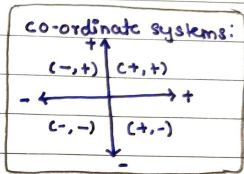 co-ordinate systems:
+
(-,+) (+,+)
- +
(-,-) (+,-)
-